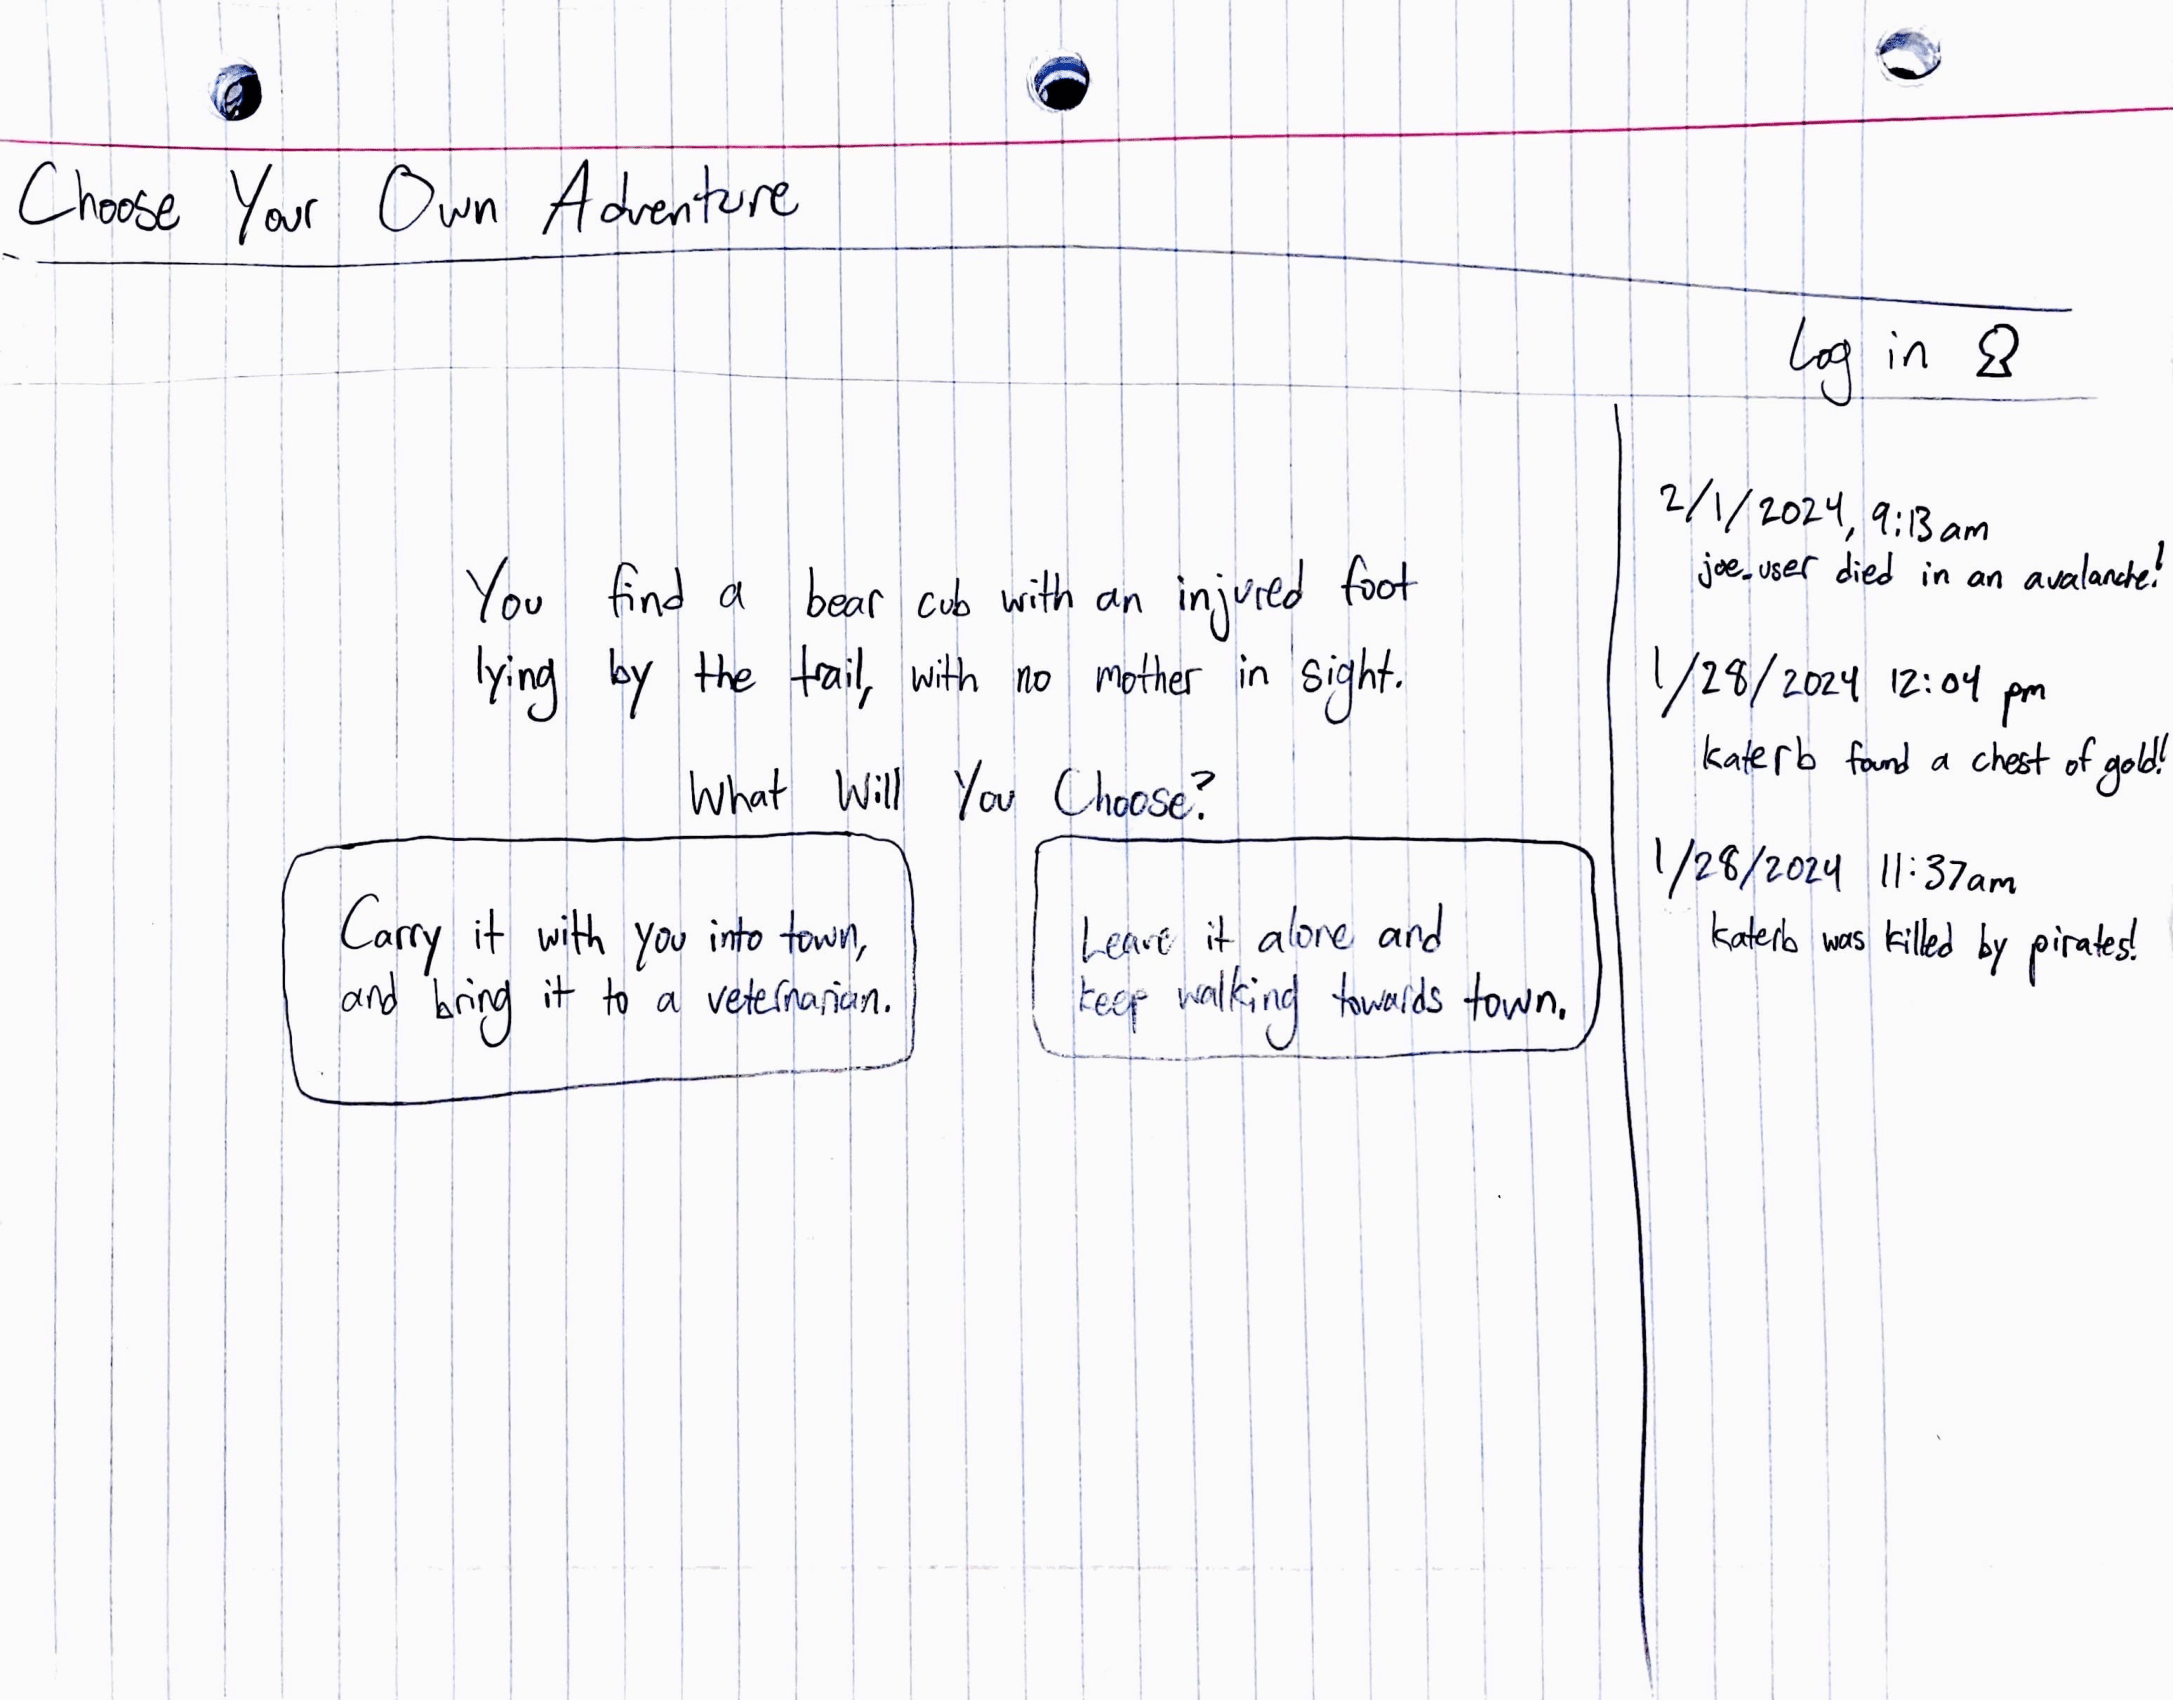 Choose Your Own Adventure
Log in
You find a bear cub with an injured foot
lying by the trail, with no mother in sight.
What Will You Choose?
Carry it with you into town,
and bring it to a veternarian.
Leave it alone and
keep walking towards town.
2/1/2024, 9:13am
joe_user died in an avalanche!
1/28/2024 12:04 pm
katerb found a chest of gold!
1/28/2024 11:37am
katerb was killed by pirates!